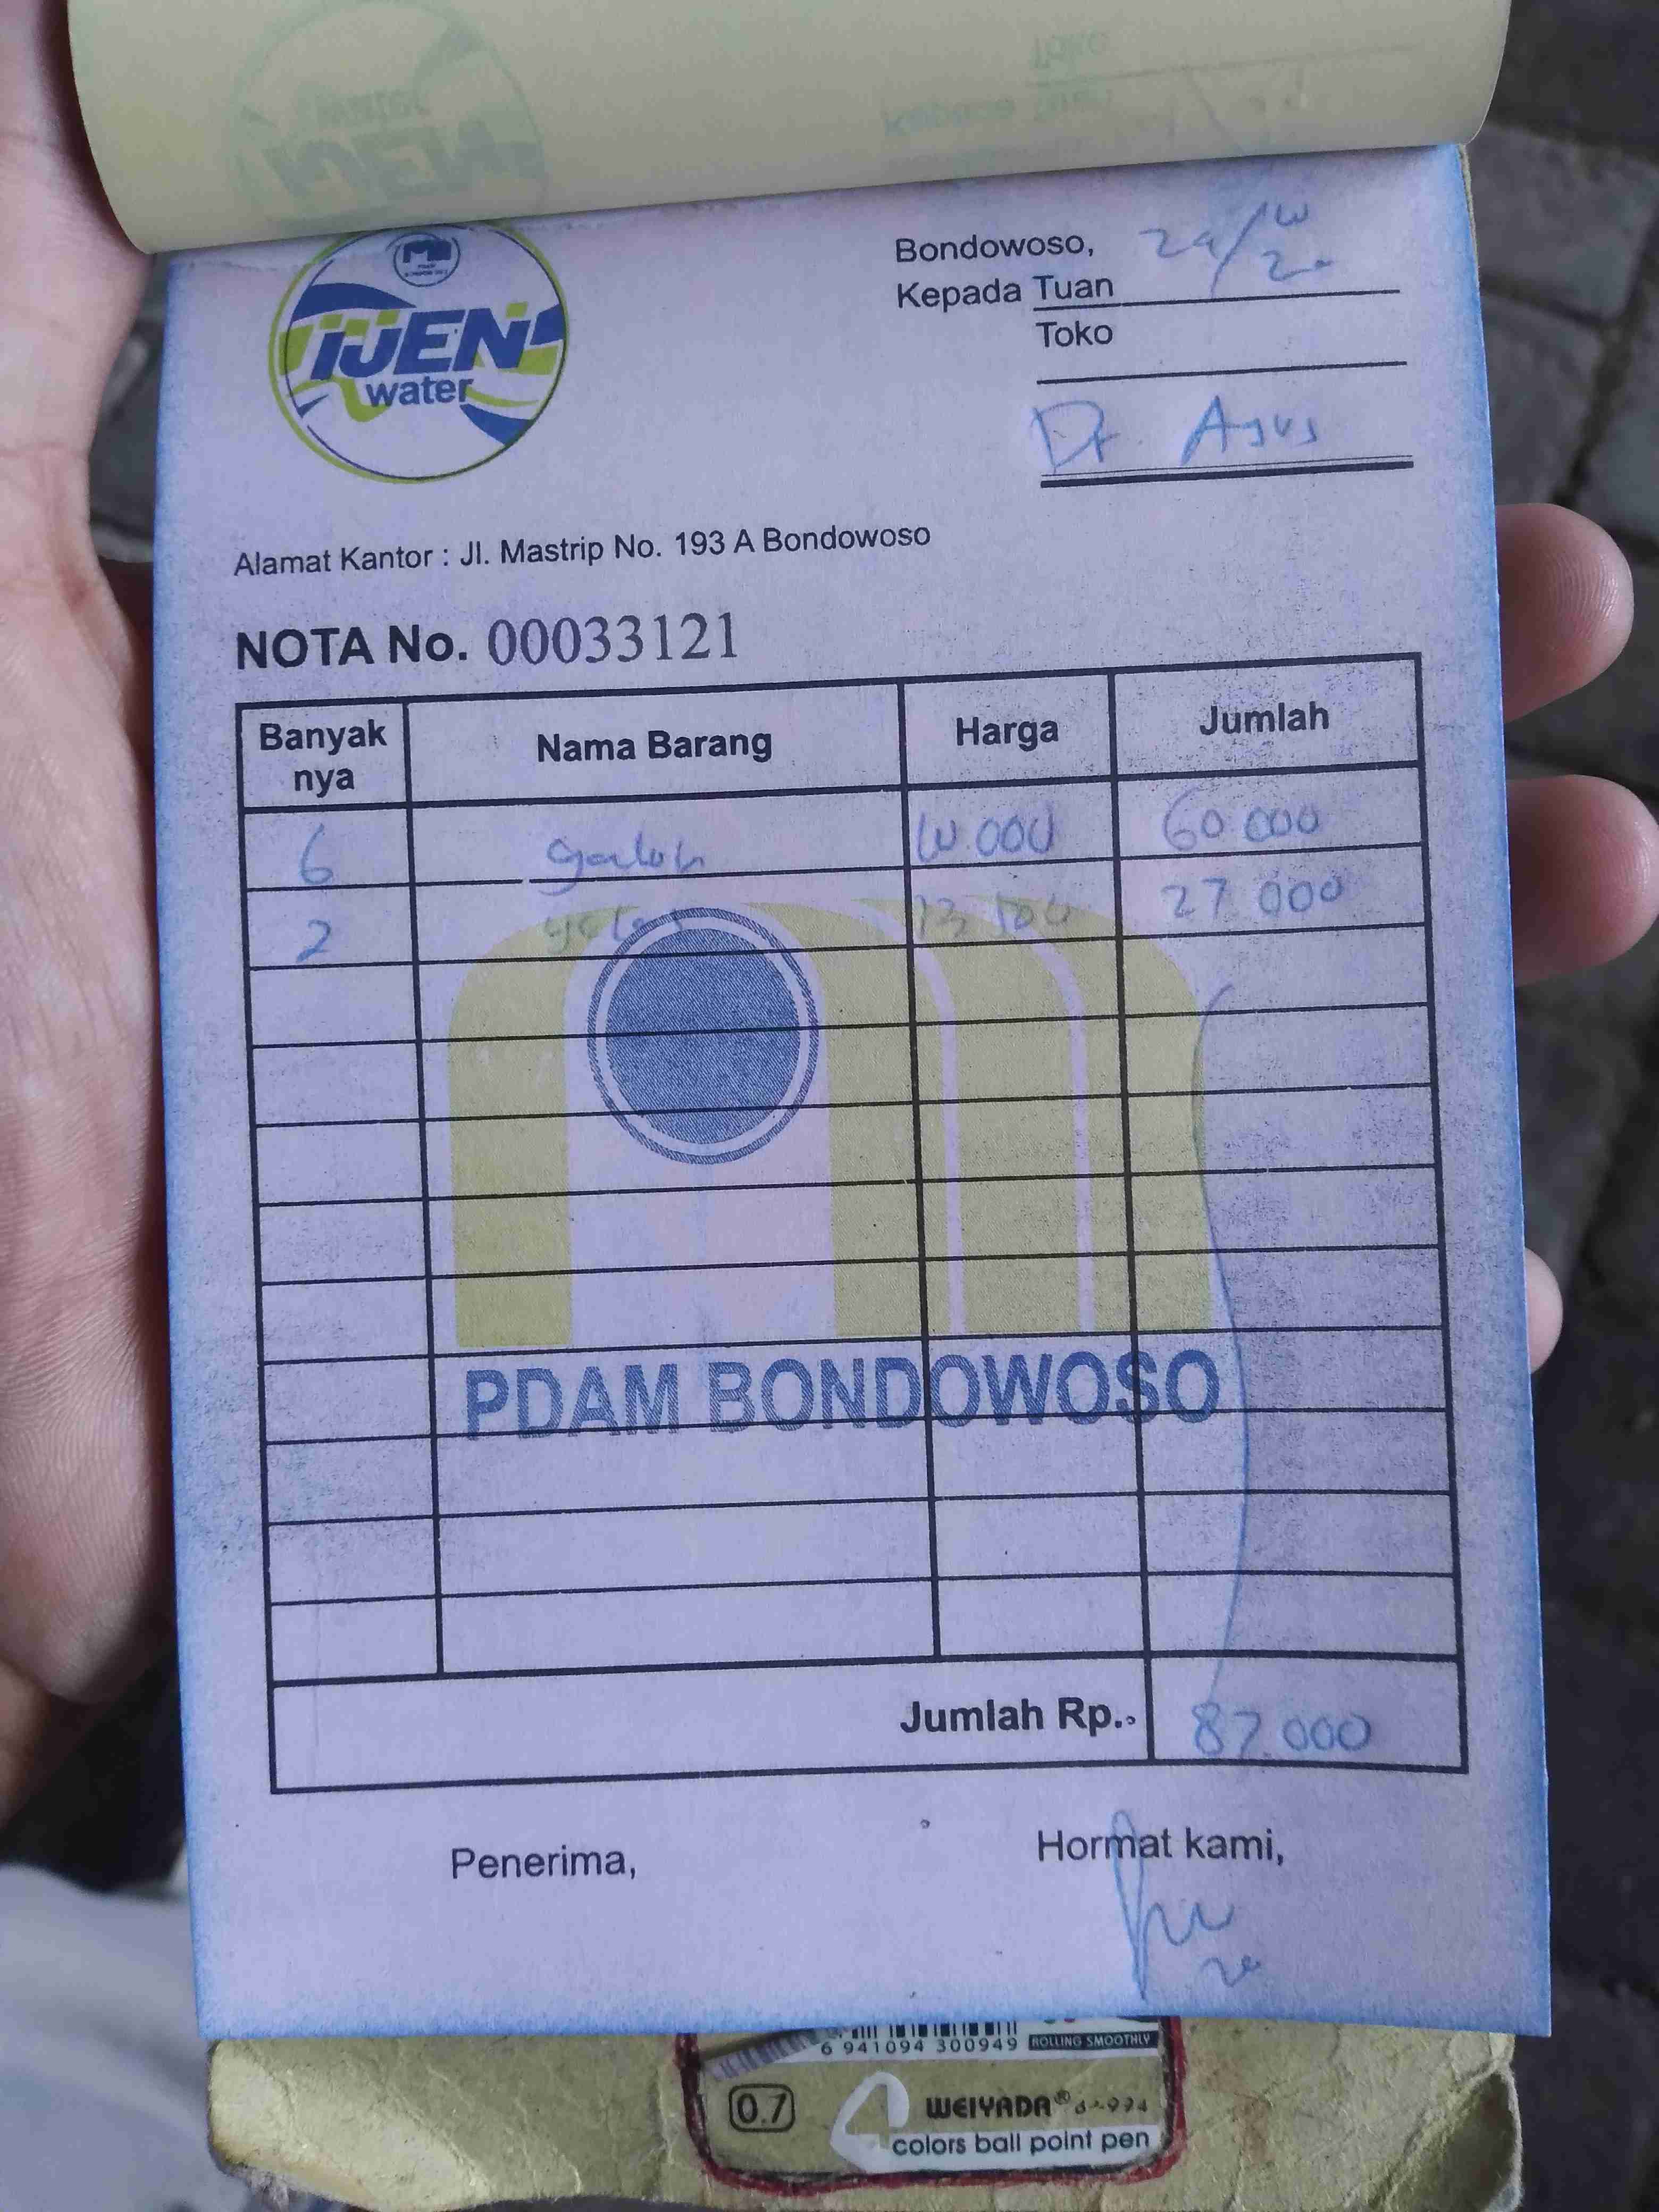 IJEN
water
Bondowoso,
Kepada Tuan
Toko
Dr. Agus
Alamat Kantor : Jl. Mastrip No. 193 A Bondowoso
NOTA No. 00033121
Banyak nya Nama Barang Harga Jumlah
6 galon 10.000 60.000
2 gelas 13.500 27.000
PDAM BONDOWOSO
Jumlah Rp. 87.000
Penerima, Hormat kami,
6 941094 300949 ROLLING SMOOTHLY
0.7 4 WEIYADA®
colors ball point pen